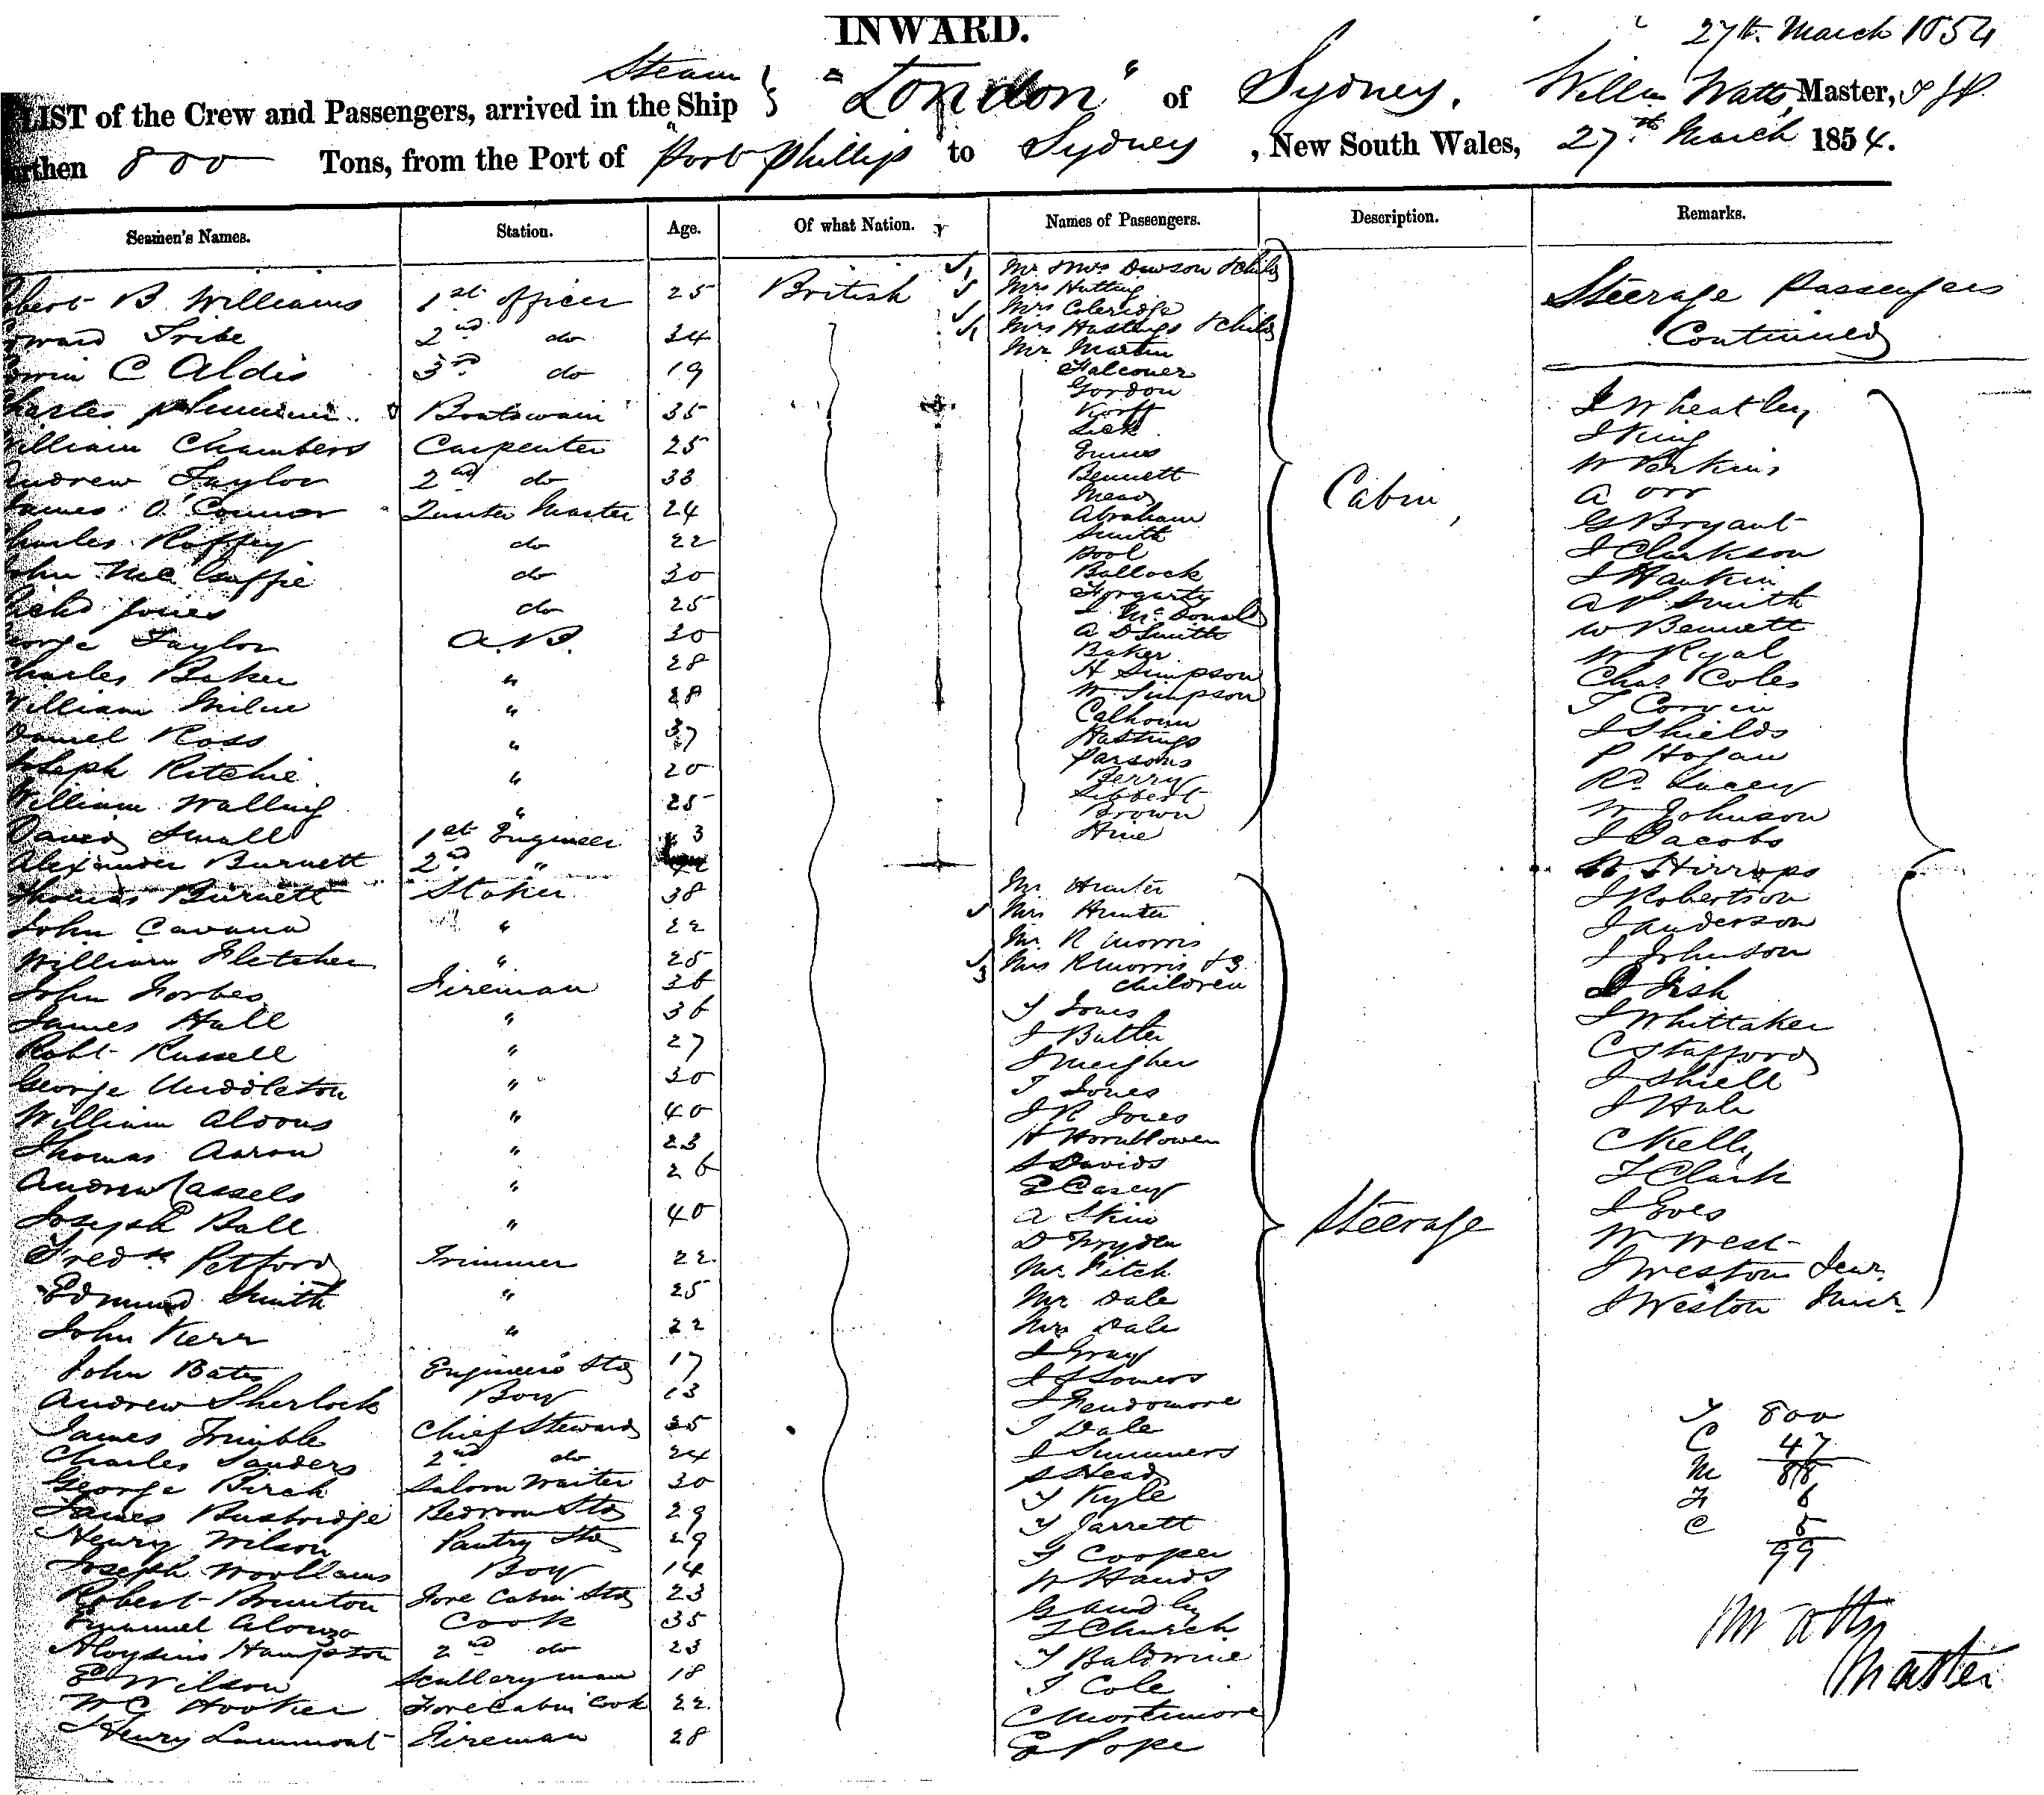 INWARD.
27th March 1854
Steam
LIST of the Crew and Passengers, arrived in the Ship "London" of Sydney, Willm Watts, Master,
rthen 800 Tons, from the Port of Port Phillip to Sydney, New South Wales, 27th March 1854.
Seamen's Names. Station. Age. Of what Nation. Names of Passengers. Description. Remarks.
bert B Williams 1st officer 25 British
ward Tribe 2nd do 34
win C Aldis 3rd do 19
harles Boatswain 35
William Chambers Carpenter 25
Andrew Taylor 2nd do 33
James O'Connor Quarter Master 24
Charles Roffey do 22
John McGuffie do 30
Richd Jones do 25
George Taylor A.B. 30
Charles Baker " 28
William Milne " 28
Daniel Ross " 37
Joseph Ritchie " 20
William Walling " 25
David Small 1st Engineer 3
Alexander Burnett 2nd "
Thomas Burnett Stoker 38
John Cavana " 22
William Fletcher " 25
John Forbes Fireman 36
James Hall " 36
Robt Russell " 27
George Middleton " 30
William Aldous " 40
Thomas Aaron " 23
Andrew Cassels " 26
Joseph Ball " 40
Fredk Petford Trimmer 22
Edmund Smith " 25
John Kerr " 22
John Bates Engineers Std 17
Andrew Sherlock Boy 13
James Trimble Chief Steward 35
Charles Sanders 2nd do 24
George Birch Saloon Waiter 30
James Busbridge Bedroom Std 29
Henry Wilson Pantry Std 29
Joseph Woollams Boy 14
Robert Brunton Fore Cabin Std 23
Emanuel Alonzo Cook 35
Aloysius Hampton 2nd do 23
E Wilson Scullery man 18
W C Hooker Fore Cabin Cook 22
Henry Lammont Fireman 28
Mr Mrs Dawson & Child
Mrs Hutting
Mrs Coleridge
Mrs Hastings & Child
Mr Martin
Falconer
Gordon
Korff
Sick
Ennis
Bennett
Mead
Abraham
Smith
Pool
Ballock
Fogarty
I McDonald
A D Smith
Baker
H Simpson
W Simpson
Calhoun
Hastings
Parsons
Berry
Sibbert
Brown
Hine
Cabin
Mr Hunter
Mrs Hunter
Mr R Morris
Mrs R Morris & 3
children
T Jones
J Butler
J Meigher
T Jones
J R Jones
H Hornblower
S Davids
E Casey
A Skin
D Dryden
Mr Fitch
Mr Dale
Mrs Dale
J Gray
J S Somers
J Fendomore
T Dale
J Summers
S Head
T Kyle
T Jarrett
T Cooper
W Hands
G Andley
T Church
T Baldwine
T Cole
C Mortimore
G Pope
Steerage
Steerage Passengers
Continued
J Wheatley
J King
W Perkins
A Orr
G Bryant
J Clarkson
J Hankin
A P Smith
W Bennett
W Ryal
Chas Coles
T Corvin
J Shields
P Hogan
Rd Lacey
W Johnson
J Jacobs
W Stirrops
J Robertson
J Anderson
J Johnson
D Fish
J Whittaker
C Stafford
J Shiell
J Hale
C Kelly
T Clark
J Eves
W West
J Weston Senr
J Weston Junr
T 800
C 47
M 88
F 6
C 5
99
W Watts
Master